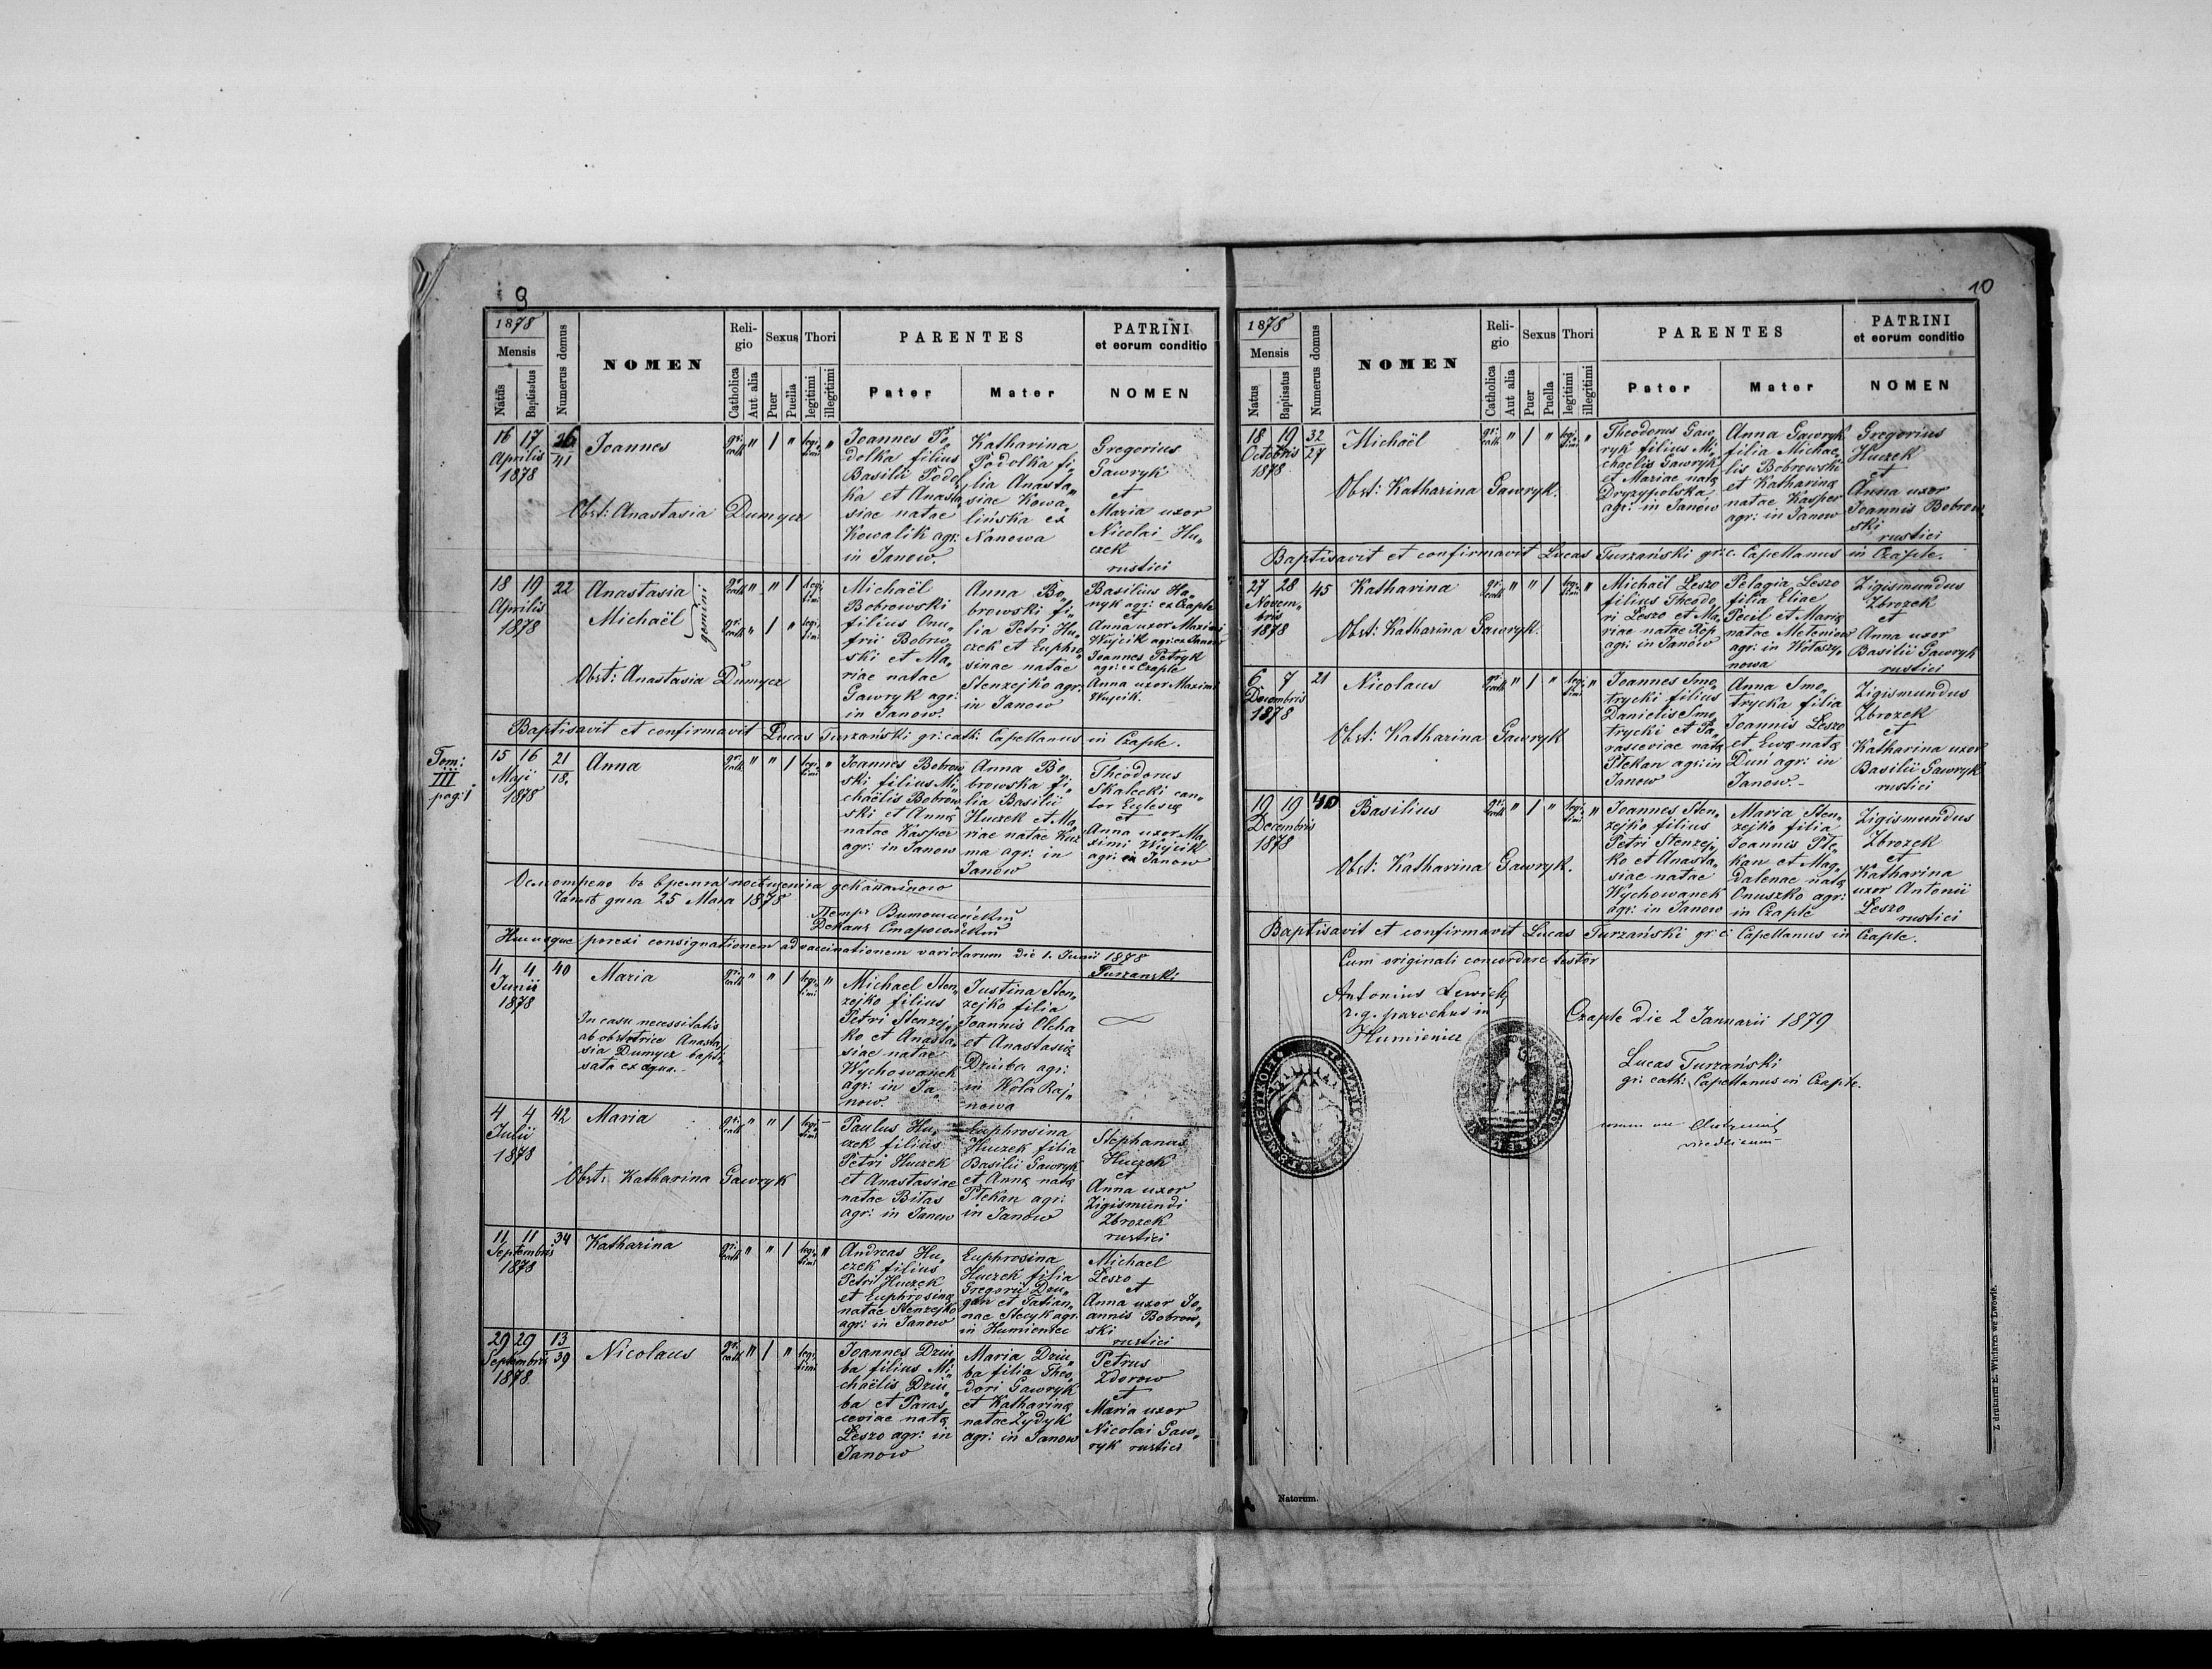 9
1878
Mensis
Natus
Baptisatus
Numerus domus
NOMEN
Reli-
gio
Catholica
Aut alia
Sexus
Puer
Puella
Thori
legitimi
illegitimi
PARENTES
Pater
Mater
PATRINI
et eorum conditio
NOMEN
16 17
Aprilis
1878
26
41
Joannes
Obst: Anastasia Dumycz
gr:
cath
" 1 "
legi-
timi
"
Joannes Po„
dolka filius
Basilii Podol„
ka et Anasta„
siae natae
Kowalik agr:
in Janow.
Katharina
Podolka fi„
lia Anasta„
siae Kowa„
lińska ex
Nanowa
Gregorius
Gawryk
et
Maria uxor
Nicolai Hu„
czek
rustici
18 19
Aprilis
1878
22
Anastasia
Michaël
gemini
Obst: Anastasia Dumycz
gr:
cath
" " 1
legi
timi
gr:
cath
" 1 "
legi
timi
Michaël
Bobrowski
filius Onu„
frii Bobrow„
ski et Ma„
riae natae
Gawryk agr:
in Janow.
Anna Bo„
browski fi„
lia Petri Hu„
czek et Euphro„
sinae natae
Stenzejko agr:
in Janow
Basilius Ha„
nyk agr: ex Czaple
et
Anna uxor Maximi
Wujcik agr: ex Janow
Joannes Petryk
agr: ex Czaple
Anna uxor Maximi
Wujcik.
Baptisavit et confirmavit Lucas Turzański gr: cath: Capellanus in Czaple.
Tom:
III
pag: 1
15 16
Maji
1878
21
18.
Anna
gr:
cath
" " 1
legi-
timi
"
Joannes Bobrow„
ski filius Mi„
chaëlis Bobrow„
ski et Annæ
natae Kasper
agr: in Janow
Anna Bo„
browska fi„
lia Basilii
Huczek et Ma„
riae natae Kuź
ma agr: in
Janow
Theodorus
Skalecki can„
tor Eclesiæ
et
Anna uxor Ma„
ximi Wujcik
agr: in Janow
дня 25 Мая 1878
Hucusque porexi consignationem ad vaccinationem variolarum die 1. Junii 1878
Turzanski
4 4
Junii
1878
40
Maria
In casu necessitatis
ab obstetrice Anasta„
sia Dumycz bapti„
sata ex aqua.-
gr:
cath
" " 1
legi-
timi
"
Michael Sten„
zejko filius
Petri Stenzej„
ko et Anasta„
siae natae
Wychowanek
agr: in Ja„
now.
Justina Sten„
zejko filia
Joannis Olcha
et Anastasiæ
Dziuba agr:
in Wola Raj„
nowa
4 4
Julii
1878
42
Maria
Obst: Katharina Gawryk
gr:
cath
" " 1
legi-
timi
Paulus Hu„
czek filius
Petri Huczek
et Anastasiae
natae Bilas
agr: in Janow
Euphrosina
Huczek filia
Basilii Gawryk
et Annæ natæ
Plekan agr:
in Janow
Stephanus
Huczek
et
Anna uxor
Zigismundi
Zbrozek
rustici
11 11
Septembris
1878
34
Katharina
gr:
cath
" " 1
legi-
timi
"
Andreas Hu„
czek filius
Petri Huczek
et Euphrosinæ
natae Stenzejko
agr: in Janow
Euphrosina
Huczek filia
Gregorii Dzu„
gan et Tatian„
nae Stecyk agr:
in Humieniec
Michael
Leszo
et
Anna uxor Jo„
annis Bobrow„
ski
rustici
29 29
Septembris
1878.
13
39
Nicolaus
gr:
cath
" 1 "
legi
timi
Joannes Dziu„
ba filius Mi„
chaëlis Dziu„
ba et Paras„
ceviae natæ
Leszo agr: in
Janow
Maria Dziu„
ba filia Theo„
dori Gawryk
et Katharinæ
natae Zydyk
agr: in Janow
Petrus
Zdorow
et
Maria uxor
Nicolai Gaw„
ryk rustici
10
1878
Mensis
Natus
Baptisatus
Numerus domus
NOMEN
Reli-
gio
Catholica
Aut alia
Sexus
Puer
Puella
Thori
legitimi
illegitimi
PARENTES
Pater
Mater
PATRINI
et eorum conditio
NOMEN
18 19
Octobris
1878
32
27
Michaël
Obst: Katharina Gawryk.
gr:
cath
" 1 "
legi-
timi
"
Theodorus Gaw„
ryk filius Mi„
chaelis Gawryk
et Mariae natæ
Dryzypolska
agr: in Janow
Anna Gawryk
filia Michae„
lis Bobrowski
et Katharinæ
natae Kasper
agr: in Janow
Gregorius
Huczek
et
Anna uxor
Joannis Bobrow„
ski
rustici
Baptisavit et confirmavit Lucas Turzański gr: c. Capellanus in Czaple.
27 28
Novem„
bris
1878
45
Katharina
Obst: Katharina Gawryk.
gr:
cath
" " 1
legi-
timi
"
Michaël Leszo
filius Theodo„
ri Leszo et Ma„
riae natae Rop
agr: in Janow
Pelagia Leszo
filia Eliae
Pecil et Mariæ
natae Meteniow
agr: in Wołoszy„
nowa
Zigismundus
Zbrozek
et
Anna uxor
Basilii Gawryk
rustici
6 7
Decembris
1878
21
Nicolaus
Obst: Katharina Gawryk
gr:
cath
" 1 "
legi
timi
"
Joannes Smo„
trycki filius
Danielis Smo„
trycki et Pa„
rasceviae natæ
Plekan agr: in
Janow
Anna Smo„
trycka filia
Joannis Leszo
et Ewæ natæ
Duń agr: in
Janow.-
Zigismundus
Zbrozek
et
Katharina uxor
Basilii Gawryk
rustici
19 19
Decembris
1878
40
Basilius
Obst: Katharina Gawryk.
gr:
cath
" 1 "
legi
timi
"
Joannes Sten„
zejko filius
Petri Stenzej„
ko et Anasta„
siae natae
Wychowanek
agr: in Janow
Maria Sten„
zejko filia
Joannis Ple„
kan et Mag„
dalenae natæ
Onuszko agr:
in Czaple
Zigismundus
Zbrozek
et
Katharina
uxor Antonii
Leszo
rustici
Baptisavit et confirmavit Lucas Turzański gr: c: Capellanus in Czaple.
Cum originali concordare testor
Antonius Lewick
r. g. parochus in
Humieniec
Czaple die 2 Januarii 1879
Lucas Turzański
gr: cath: Capellanus in Czaple.
Z drukarni E. Winiarza we Lwowie.
Natorum.